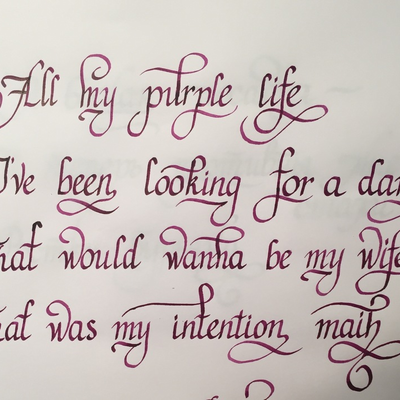 All my purple life
I've been looking for a dam
hat would wanna be my wife
hat was my intention main